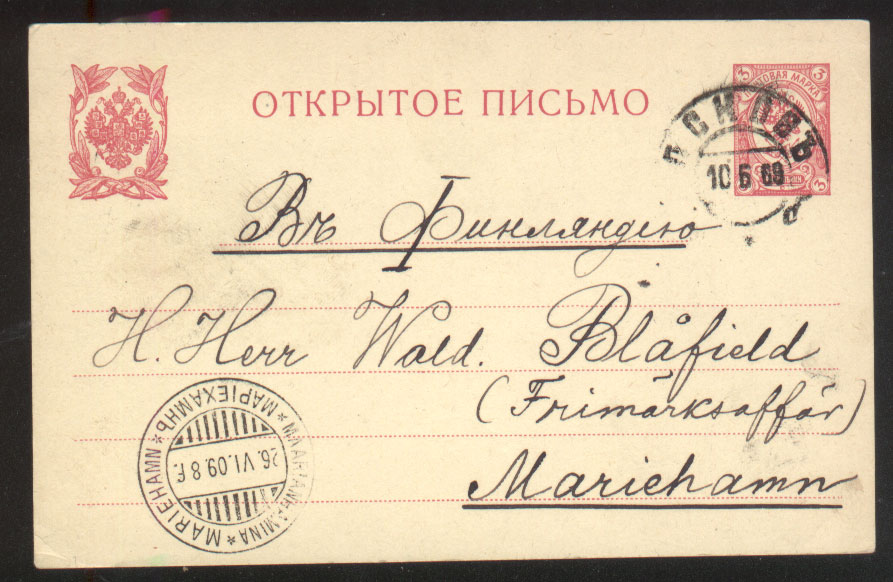 ОТКРЫТОЕ ПИСЬМО
3 ПОЧТОВАЯ МАРКА 3
3
10 6 09
Въ Финляндію
H. Herr Wald. Blåfield
(Frimärksaffär)
Mariehamn
МАРІЕХАМНЪ * MAARIANHAMINA * MARIEHAMN *
26.VI.09.8 F.